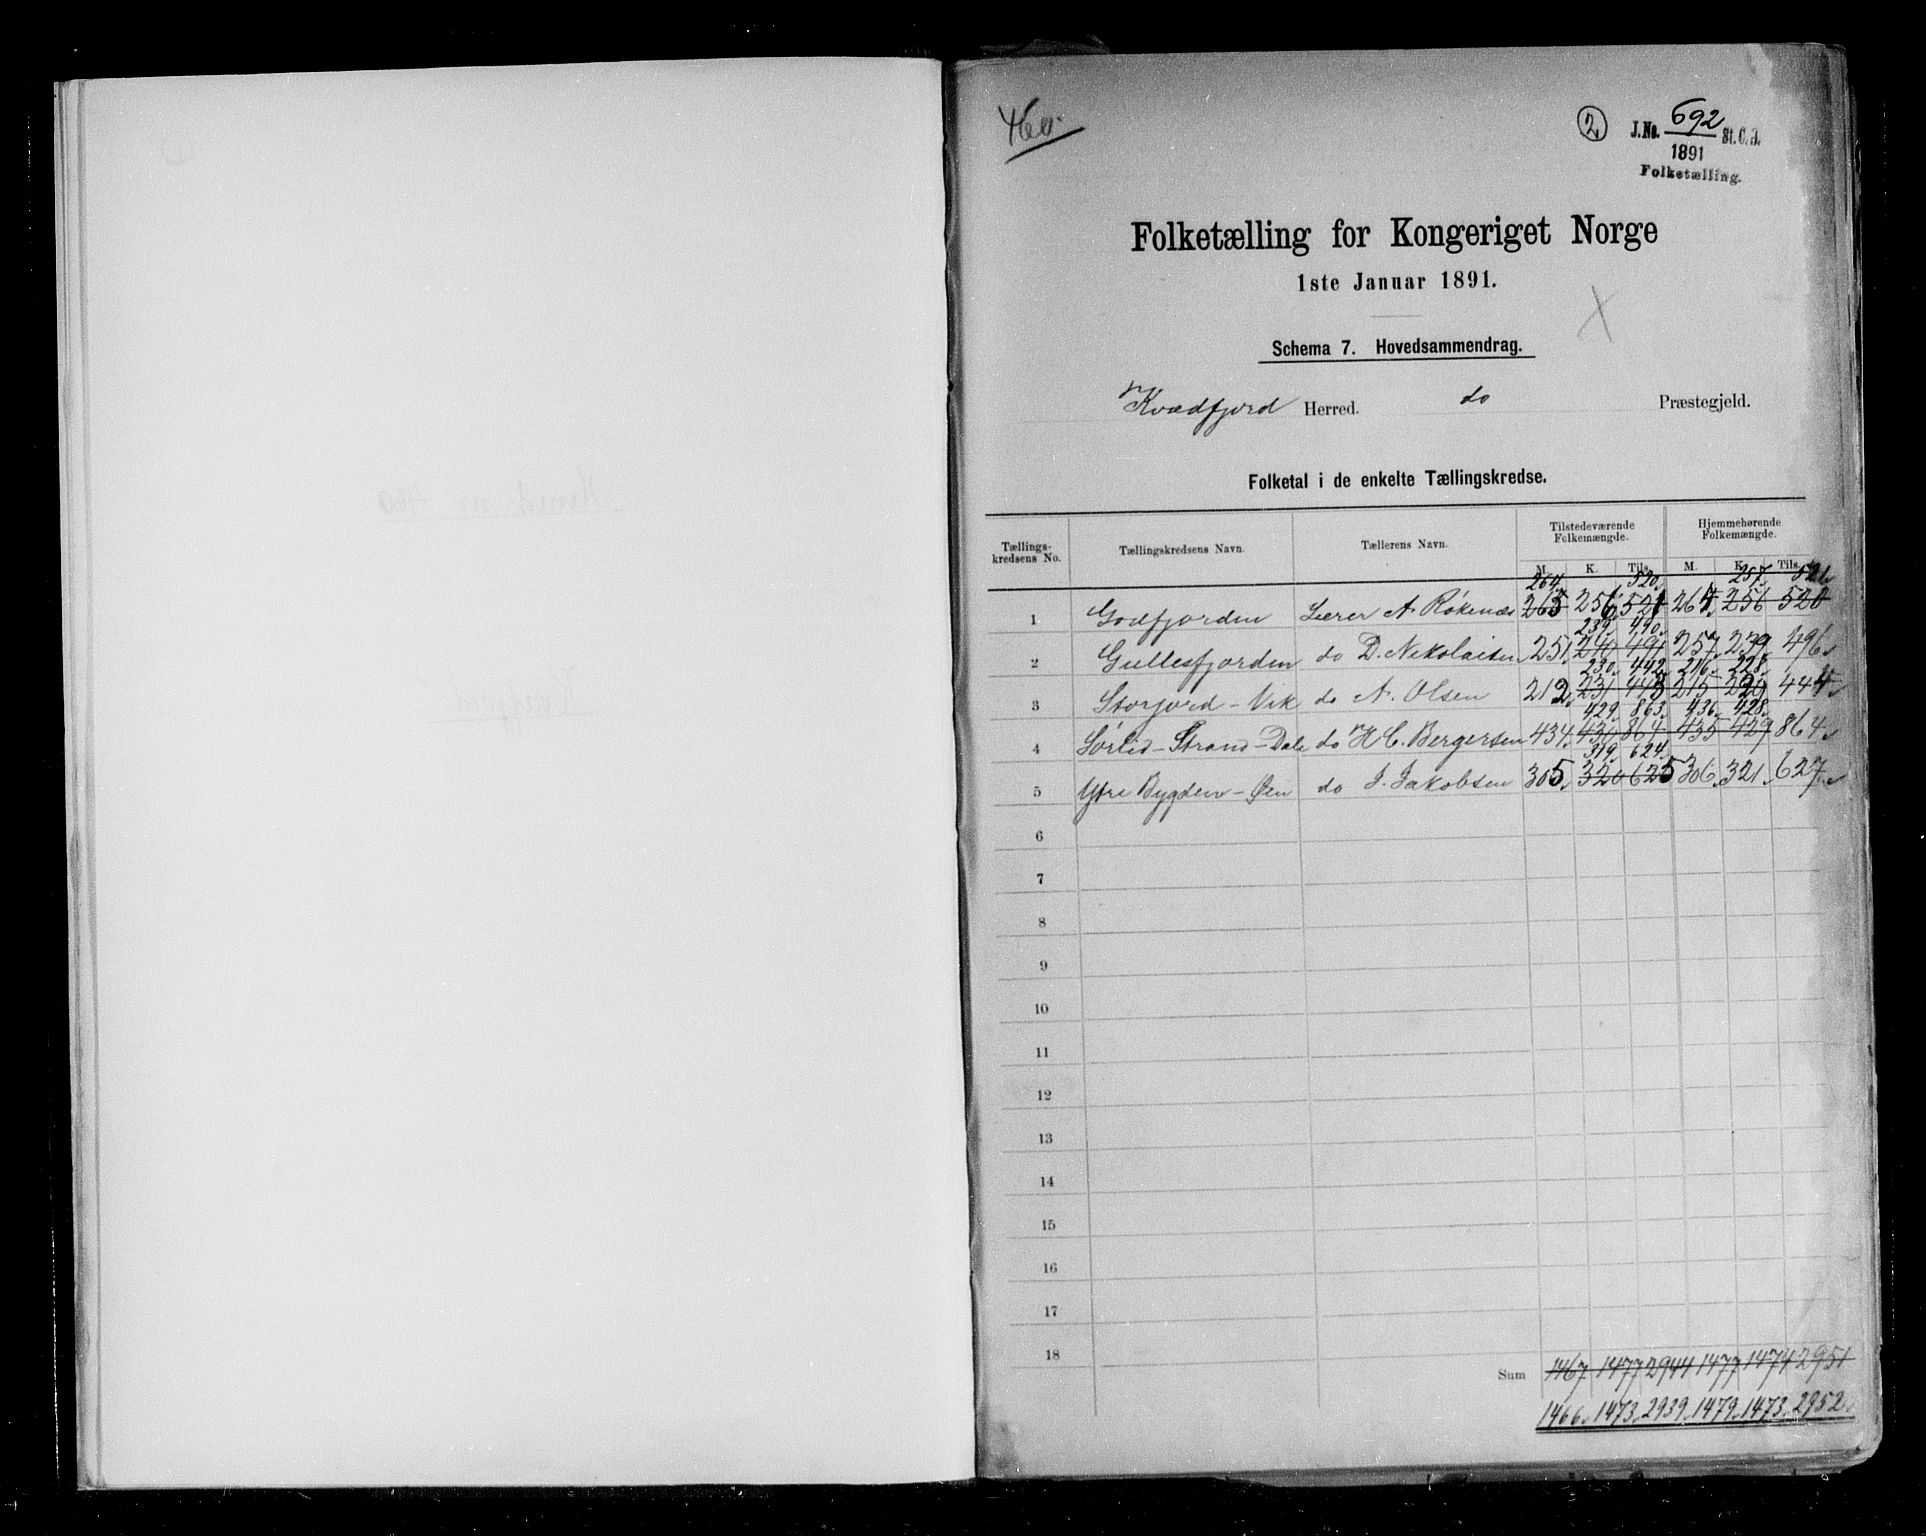 460.
2
J.No. 692 St.C.B.
1891
Folketælling.
Folketælling for Kongeriget Norge
1ste Januar 1891.
Schema 7. Hovedsammendrag.
Kvædfjord Herred. do Præstegjeld.
Folketal i de enkelte Tællingskredse.
Tællings-kredsens No. Tællingskredsens Navn. Tællerens Navn. Tilstedeværende Folkemængde. Hjemmehørende Folkemængde.
M. K. Tils. M. K. Tils.
264. 520. 257. 521.
1 Godfjorden Lærer A. Røkenæs 265 256 521 264 256 520
239. 490.
2 Gullesfjorden do D. Nikolaisen 251. 240 491 257. 239. 496.
230. 442. 216. 228.
3 Storjord - Vik do A. Olsen 212. 231 443 215 229 444.
429. 863. 436. 428.
4 Sørlid - Strand - Dale do H C. Bergersen 434. 430 864 435 429 864.
319. 624.
5 Ytre Bygden - Øen do J. Jakobsen 305. 320 625 306. 321. 627.
6
7
8
9
10
11
12
13
14
15
16
17
18
Sum 1467 1477 2944 1477 1474 2951
1466. 1473. 2939. 1479. 1473. 2952.